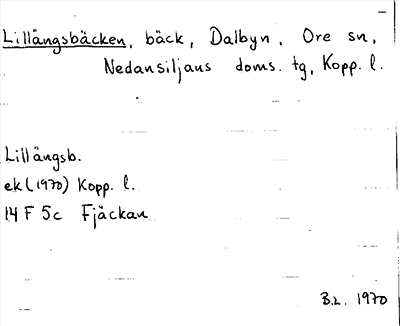 Lillängsbäcken, bäck, Dalbyn, Ore sn,
Nedansiljans doms. tg, Kopp. l.
Lillängsb.
ek (1970) Kopp. l.
14 F 5c Fjäckan
B.L. 1970